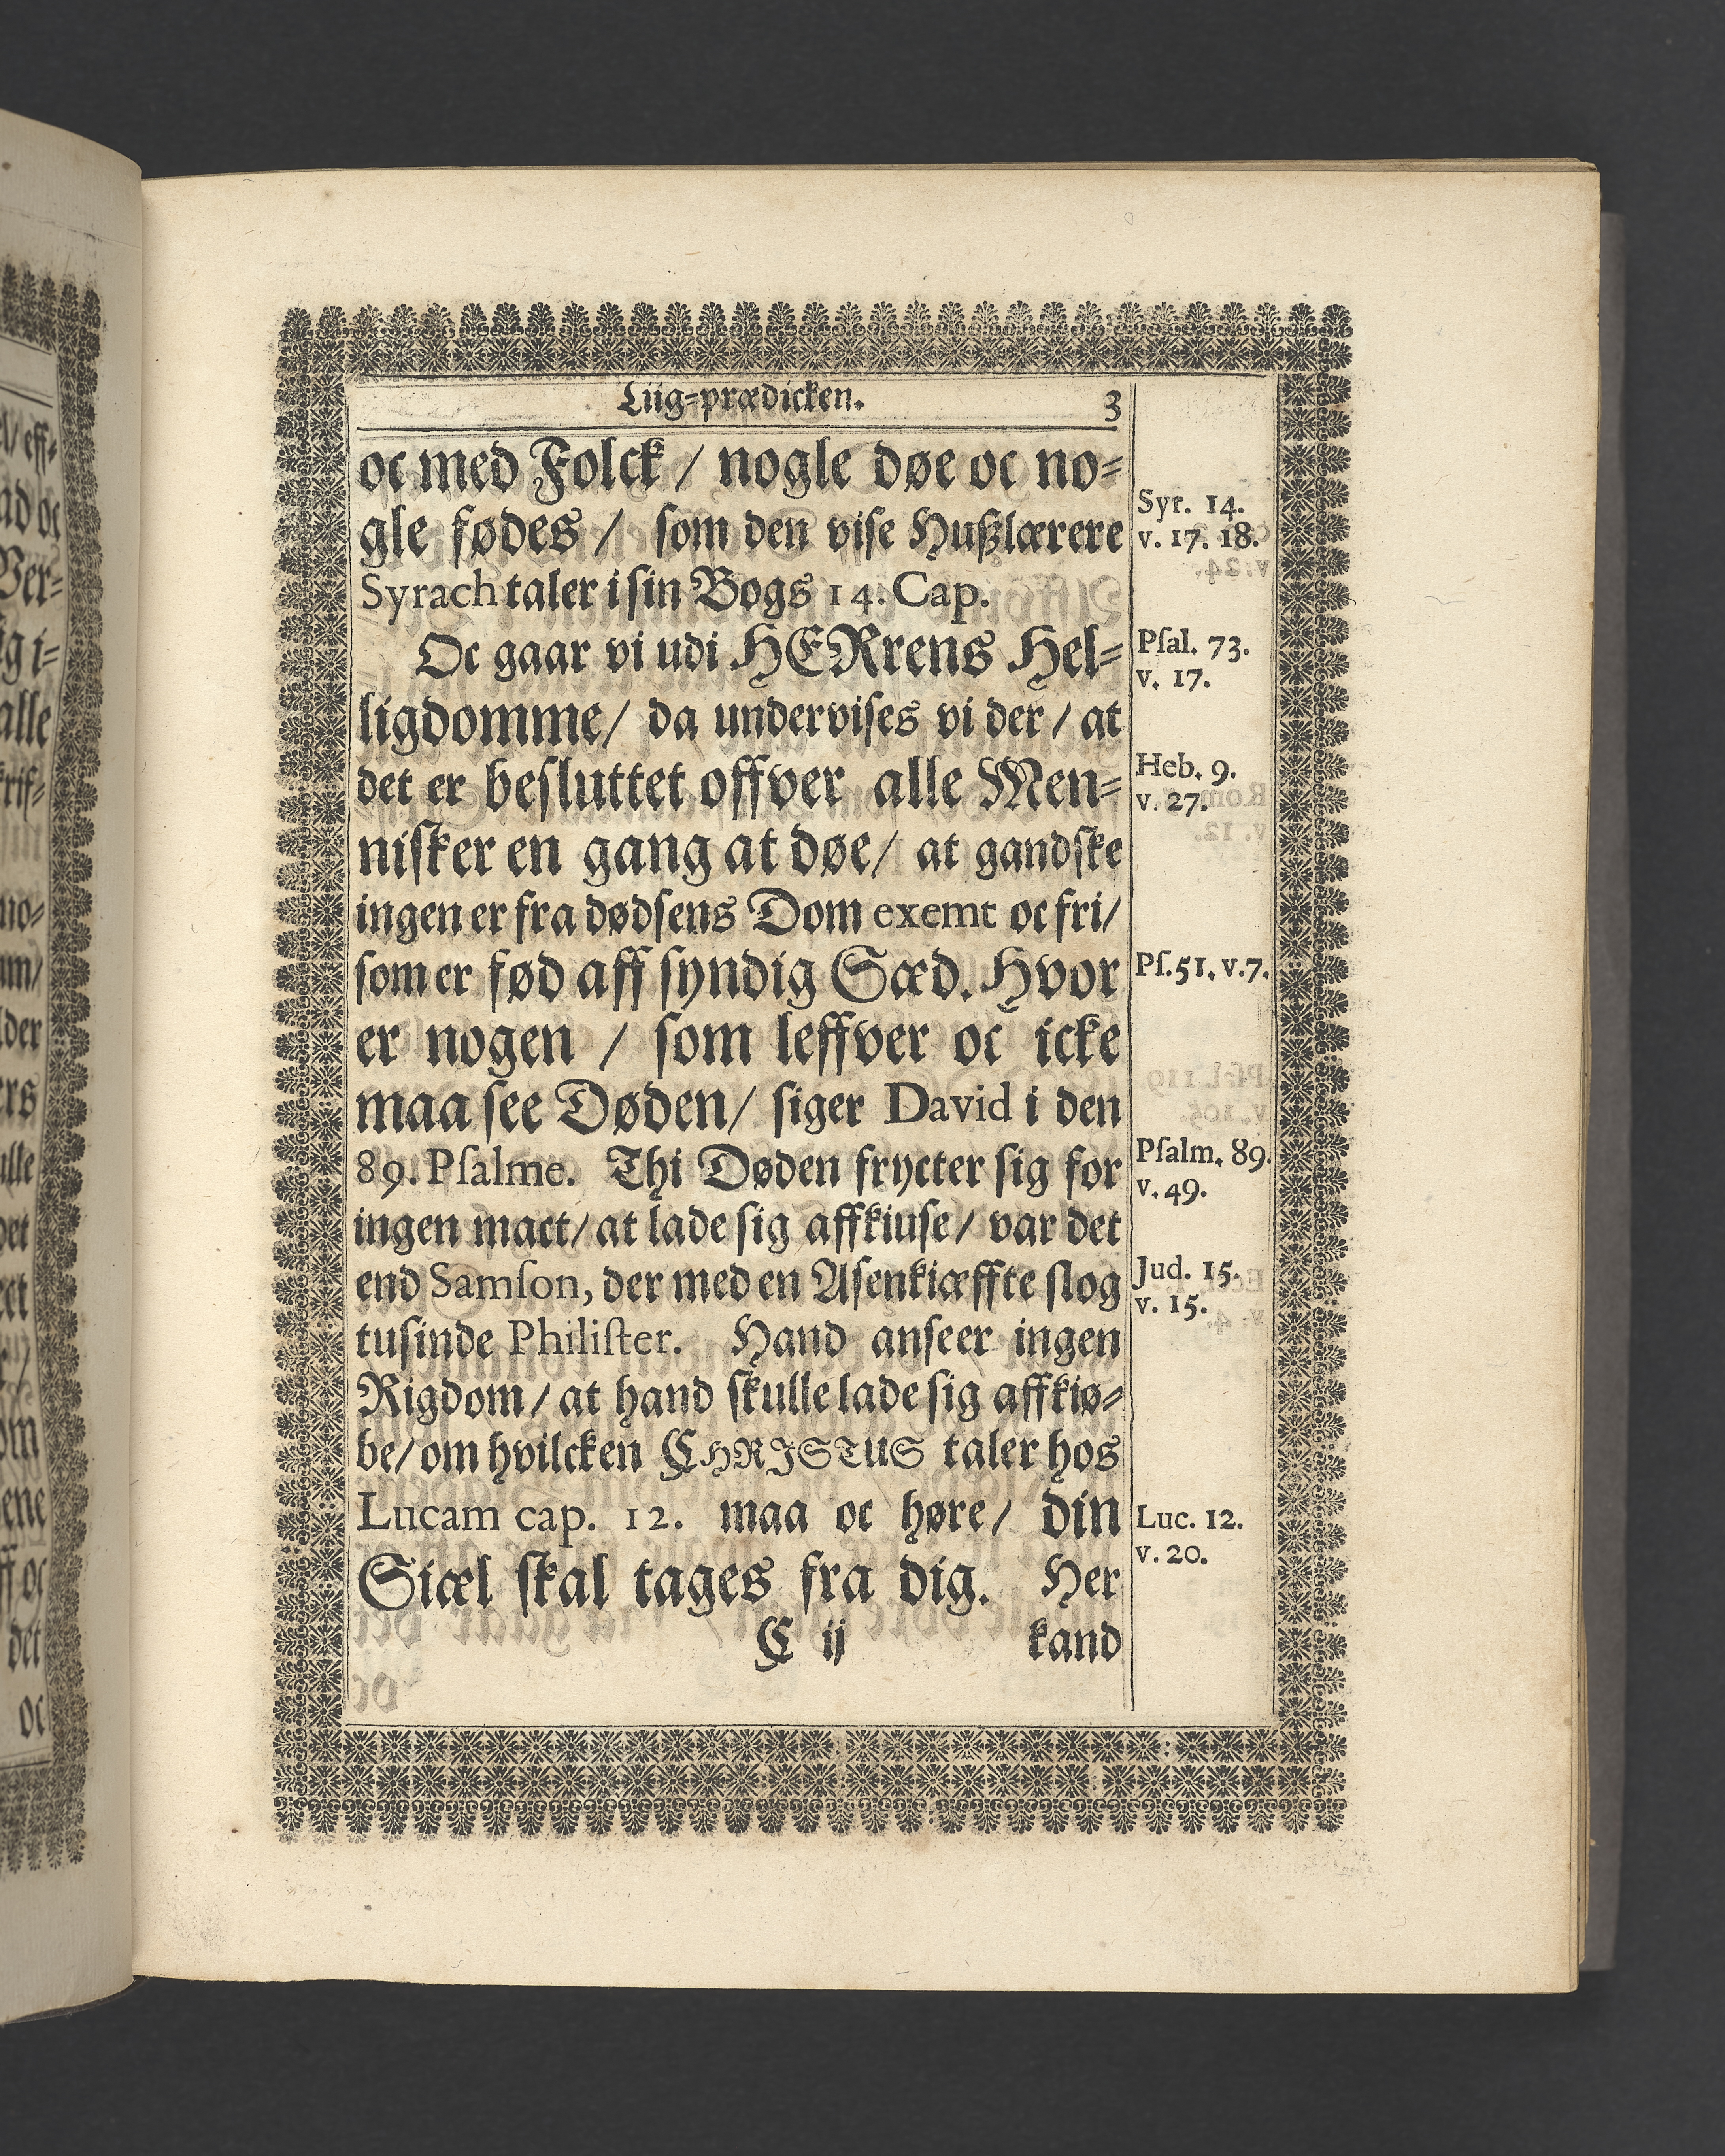 Liig-prædicken. 3
oc med Folck / nogle døe oc no-
gle fødes / som den vise Hußlærere
Syrach taler i sin Bogs 14. Cap.
Oc gaar vi udi HERrens Hel-
ligdomme / da undervises vi der / at
det er besluttet offver alle Men-
nisker en gang at døe / at gandske
ingen er fra dødsens Dom exemt oc fri /
som er fød aff syndig Sæd. Hvor
er nogen / som leffver oc icke
maa see Døden / siger David i den
89. Psalme. Thi Døden frycter sig for
ingen mact / at lade sig affkiuse / var det
end Samson, der med en Asenkiæffte slog
tusinde Philister. Hand anseer ingen
Rigdom / at hand skulle lade sig affkiø-
be / om hvilcken CHRISTUS taler hos
Lucam cap. 12. maa oc høre / din
Siæl skal tages fra dig. Her
C ij kand
Syr. 14.
v. 17. 18.
Psal. 73.
v. 17.
Heb. 9.
v. 27.
Ps. 51. v. 7.
Psalm. 89.
v. 49.
Jud. 15.
v. 15.
Luc. 12.
v. 20.